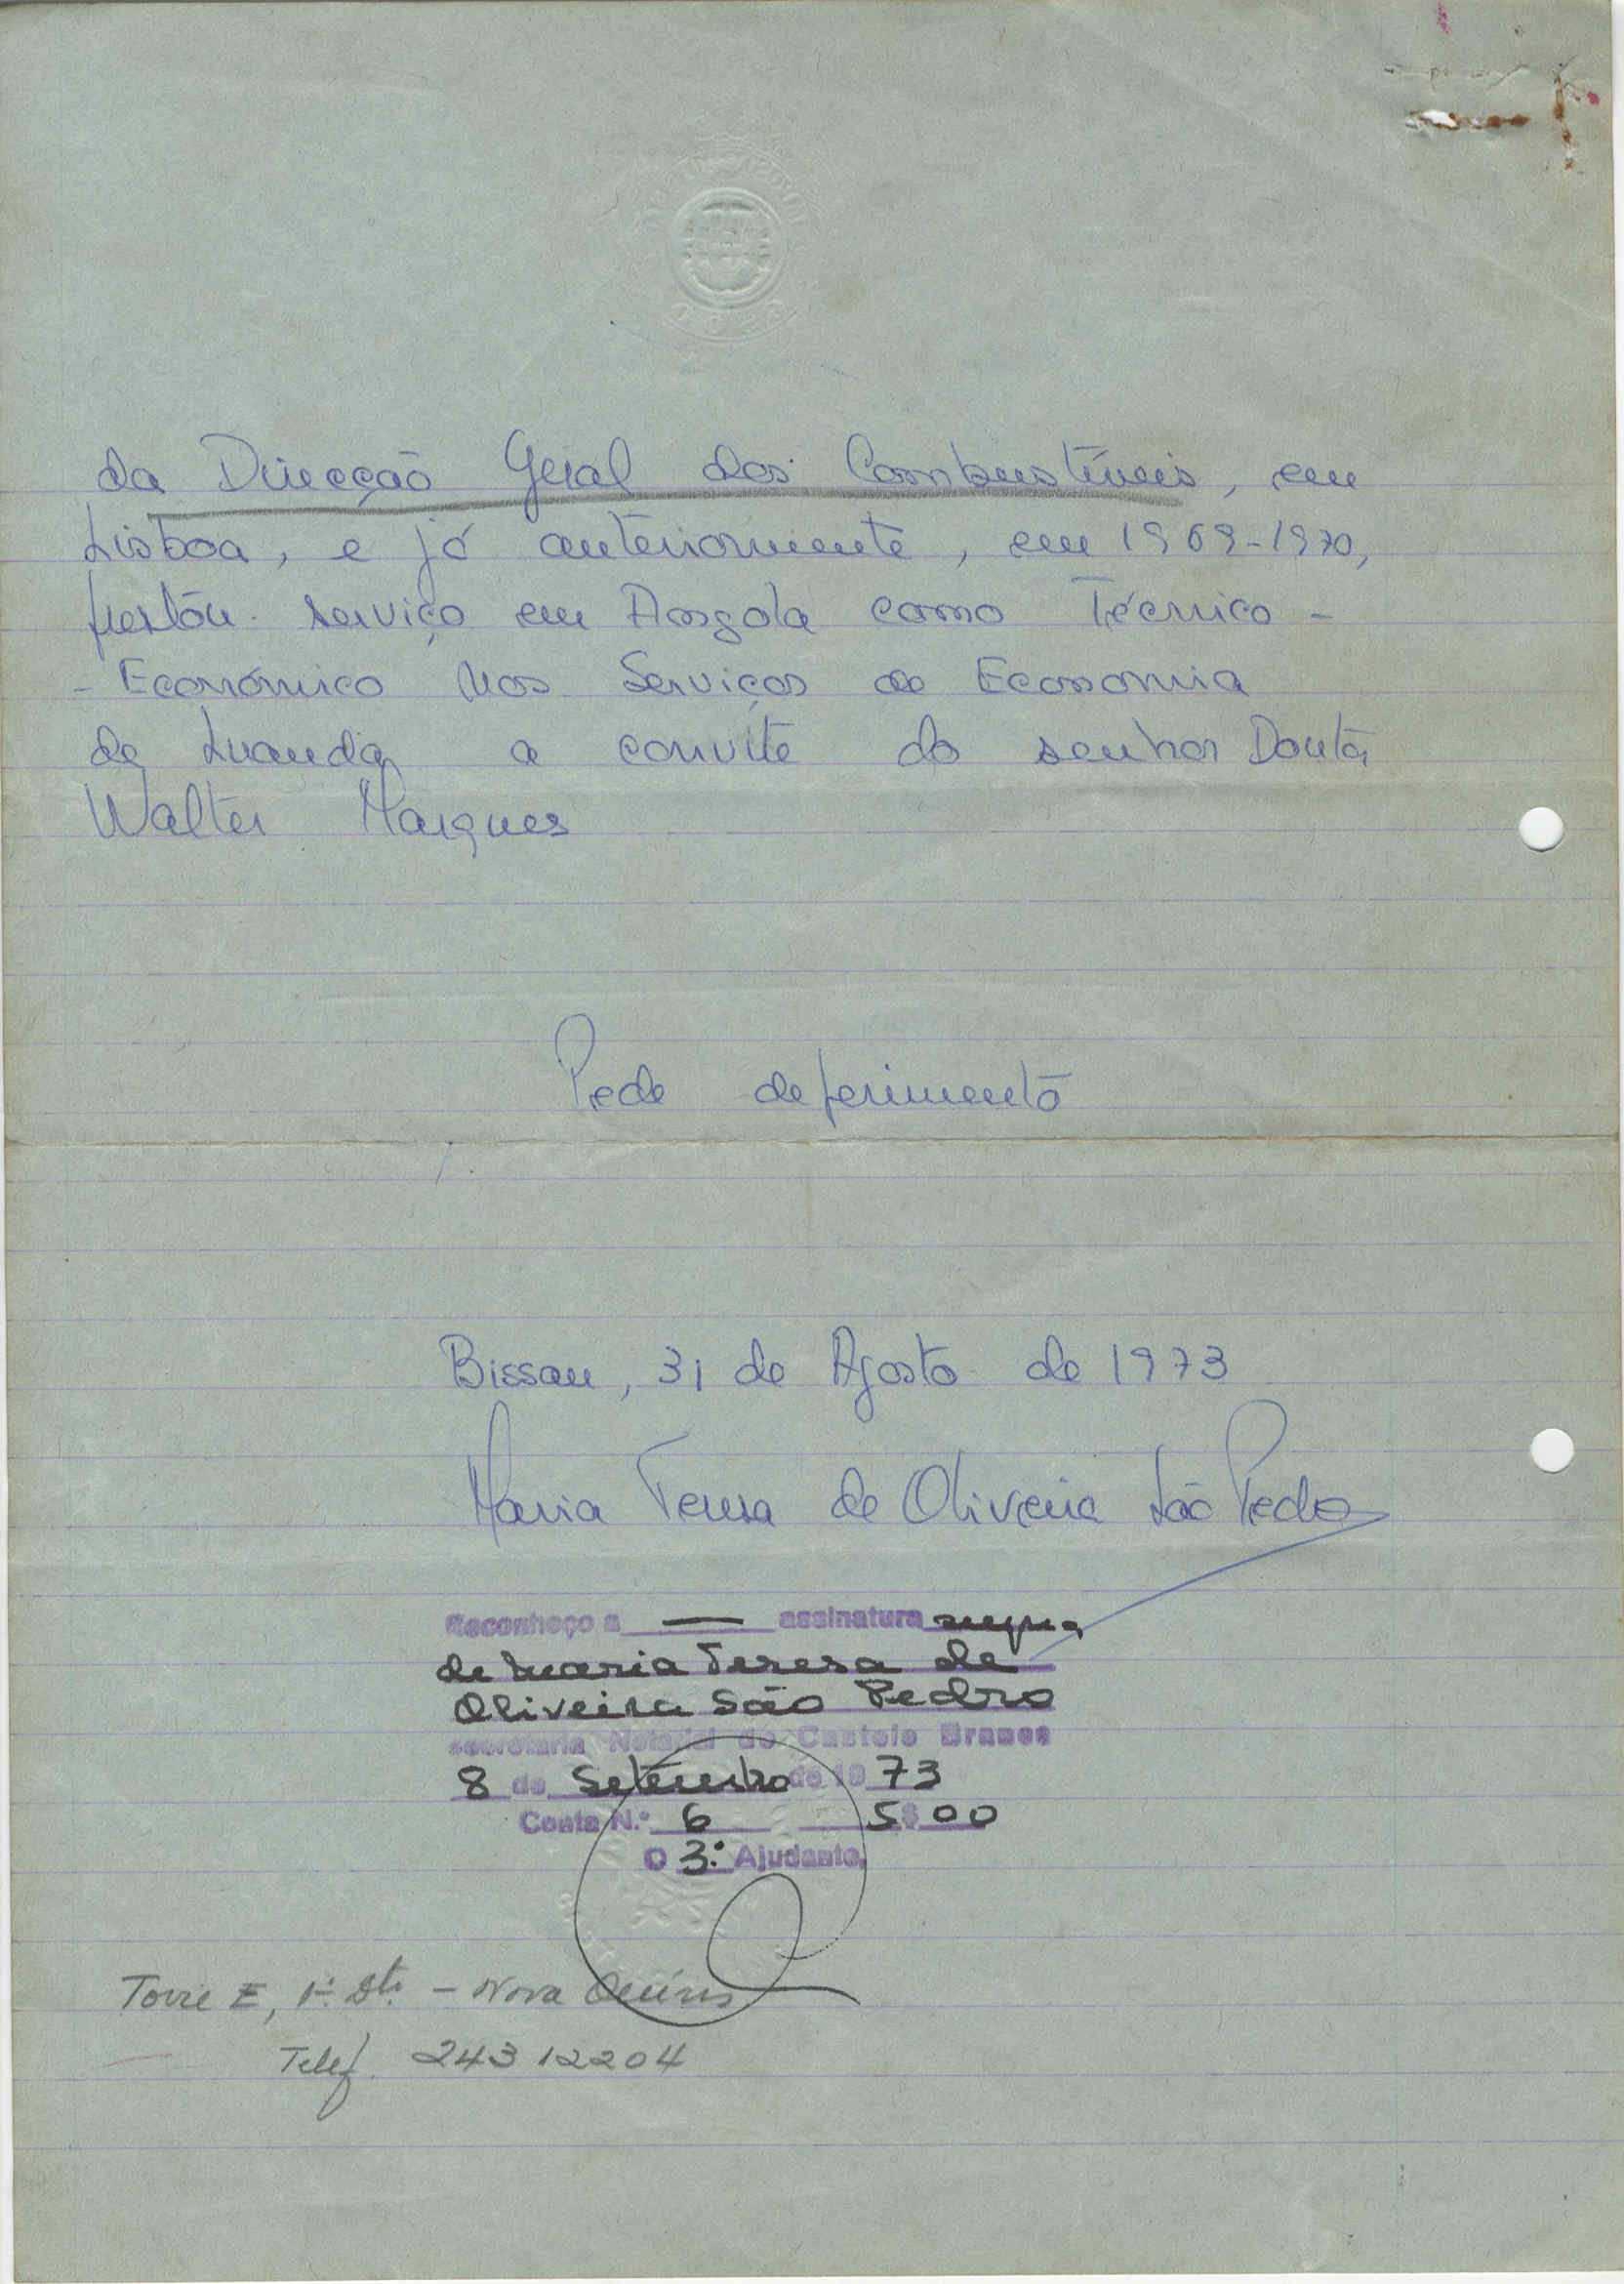 da Direcção Geral dos Combustíveis, em
Lisboa, e já anteriormente, em 1969-1970,
prestou serviço em Angola como Técnico -
- Económico nos Serviços de Economia
de Luanda a convite do senhor Doutor
Walter Marques
Pede deferimento
Bissau, 31 de Agosto de 1973
Maria Teresa de Oliveira São Pedro
Reconheço a — assinatura supra
de Maria Teresa de
Oliveira São Pedro
secretaria Notarial de Castelo Branco
8 de Setembro de 1973
Conta N.º 6 5$00
O 3.º Ajudante,
Torre E, 1.º Dt.º - Nova Oeiras
Telef. 24312204